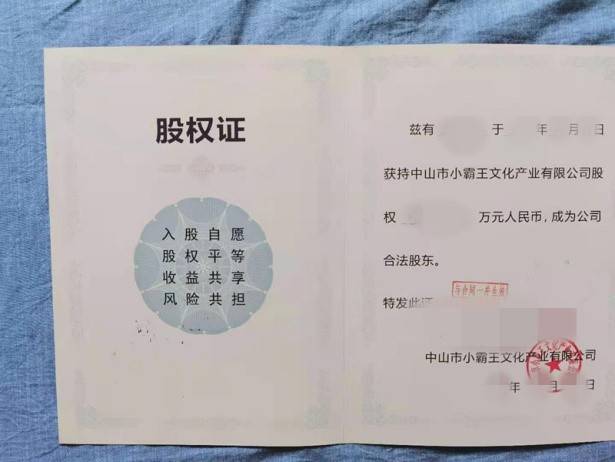 股权证
入股自愿
股权平等
收益共享
风险共担
兹有 于 年 月 日
获持中山市小霸王文化产业有限公司股
权 万元人民币，成为公司
合法股东。
特发此证
中山市小霸王文化产业有限公司
年 月 日